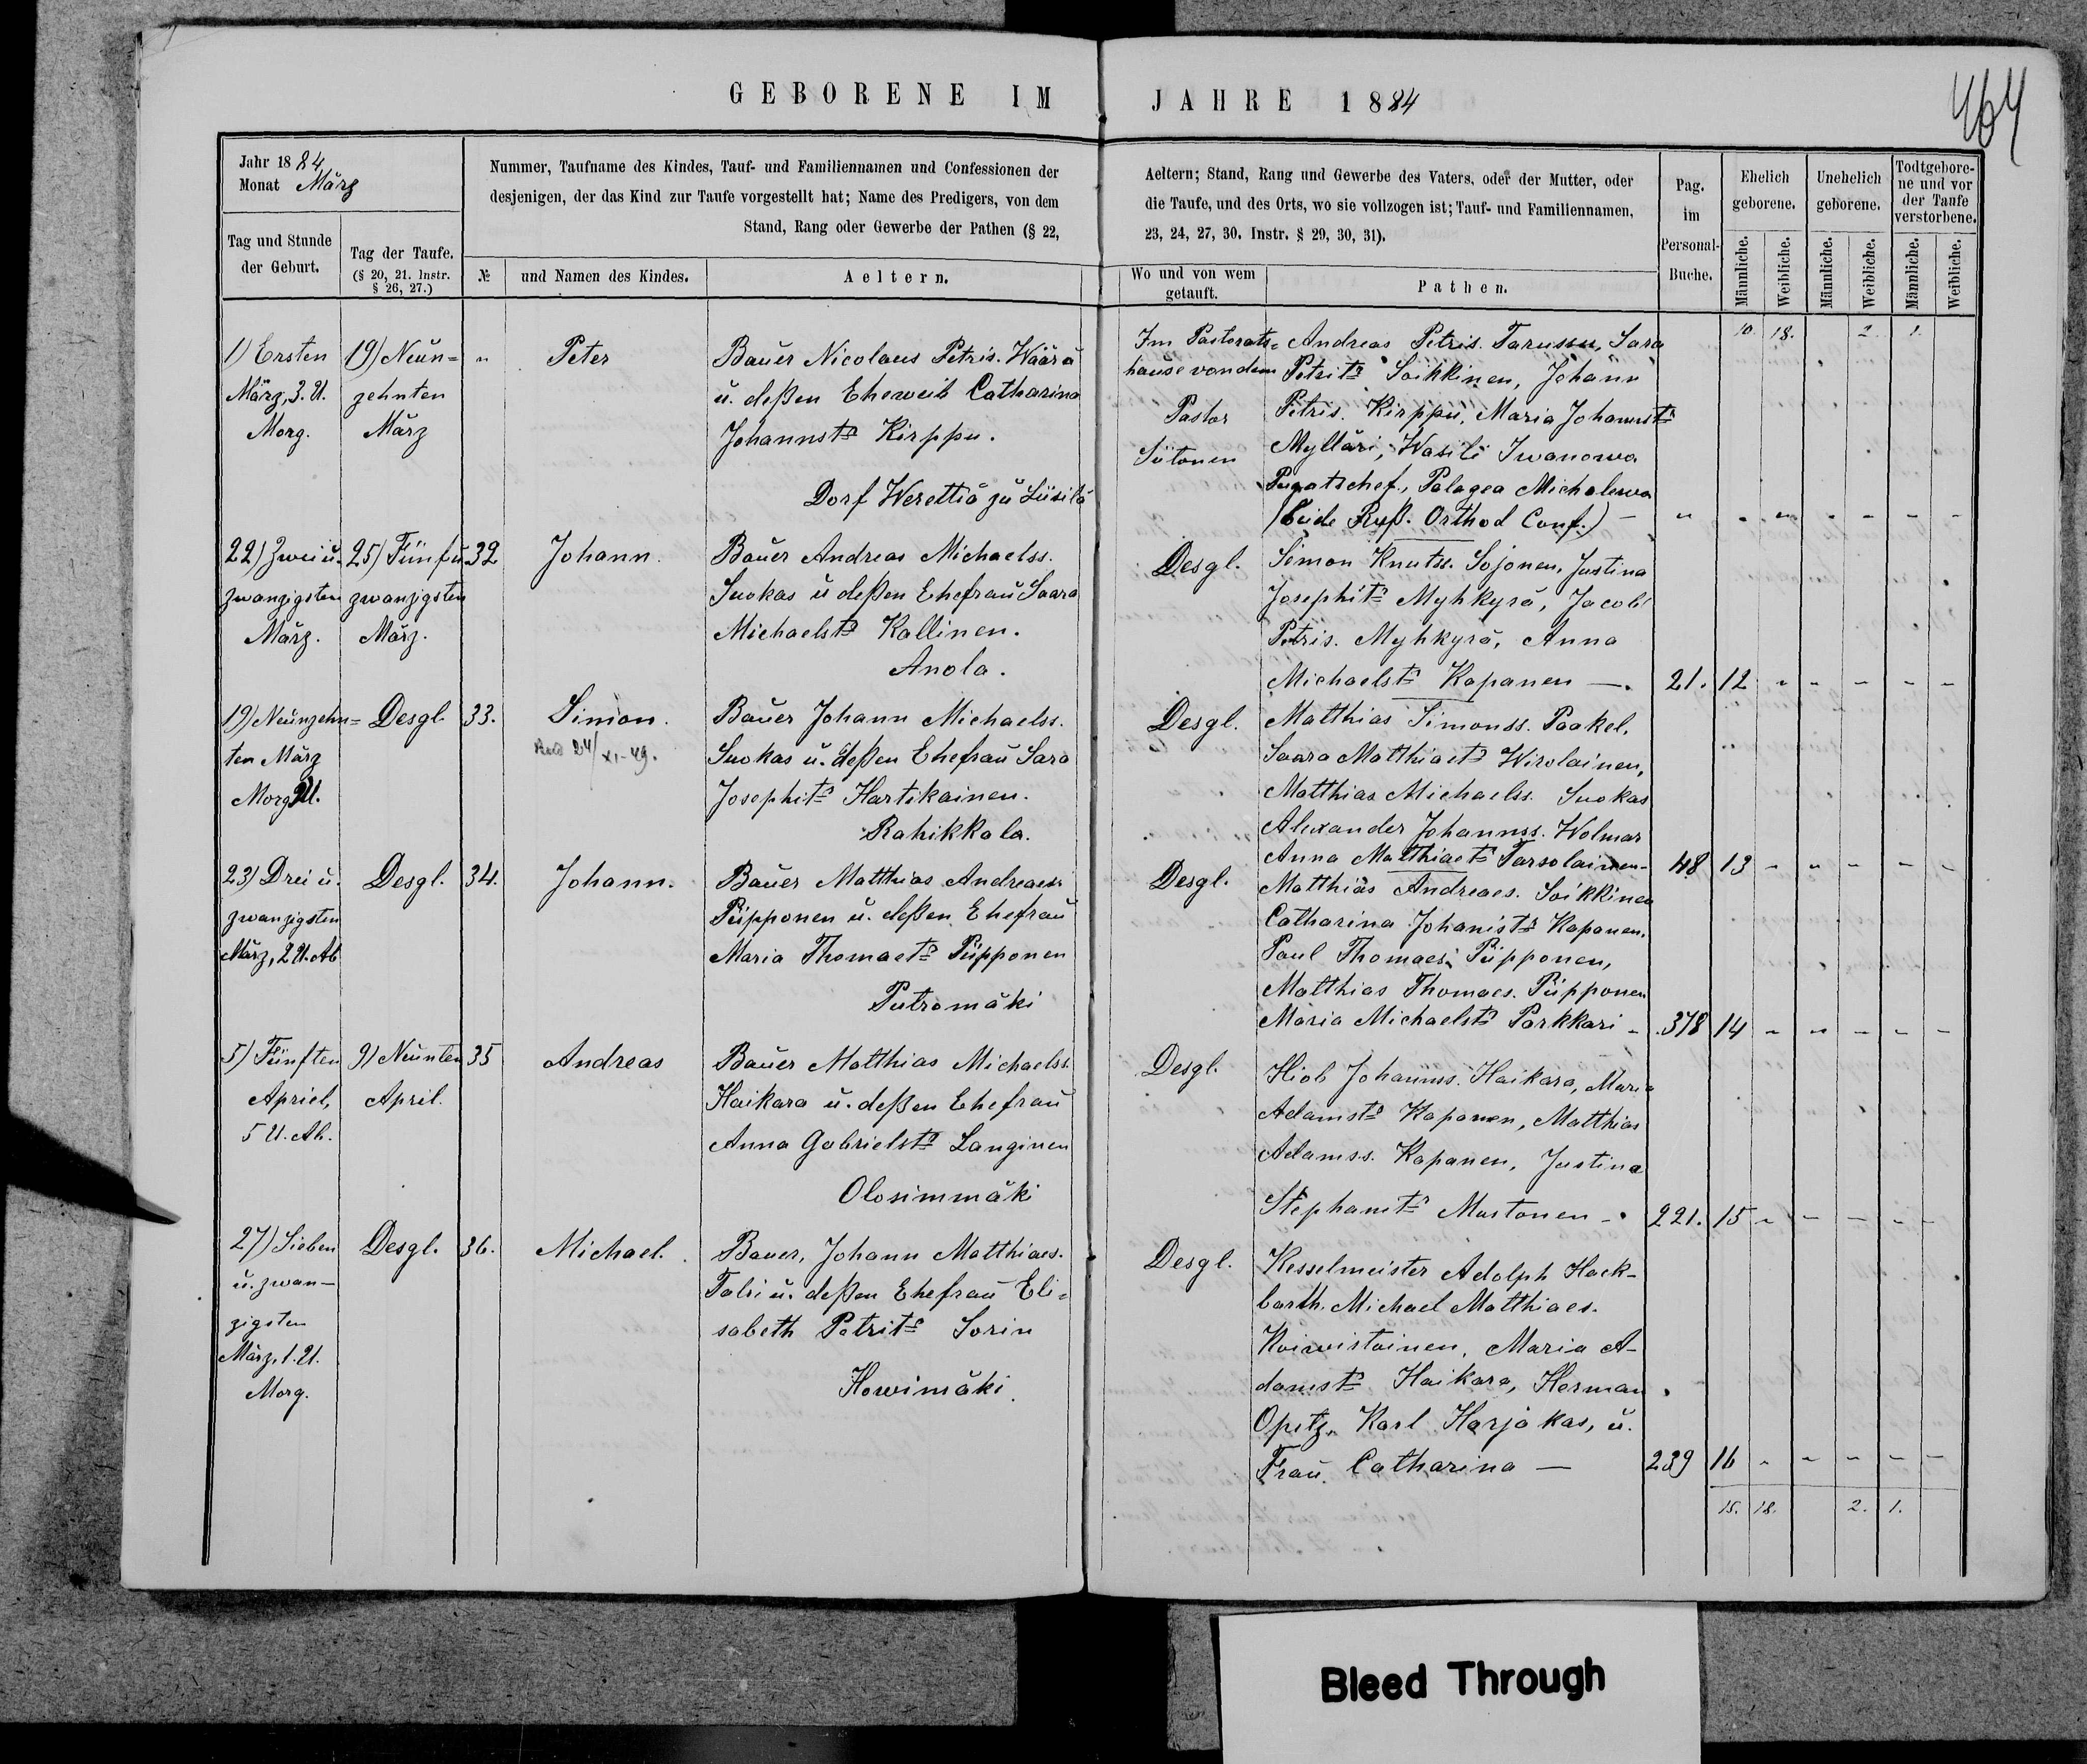 464
GEBORENE IM JAHRE 1884
Jahr 1884
Monat März
Nummer, Taufname des Kindes, Tauf- und Familiennamen und Confessionen der
desjenigen, der das Kind zur Taufe vorgestellt hat; Name des Predigers, von dem
Stand, Rang oder Gewerbe der Pathen (§ 22,
Aeltern; Stand, Rang und Gewerbe des Vaters, oder der Mutter, oder
die Taufe, und des Orts, wo sie vollzogen ist; Tauf- und Familiennamen,
23, 24, 27, 30. Instr. § 29, 30, 31).
Tag und Stunde
der Geburt.
Tag der Taufe.
(§ 20, 21. Instr.
§ 26, 27.)
№
und Namen des Kindes.
Aeltern.
Wo und von wem
getauft.
Pathen.
Pag.
im
Personal-
Buche.
Ehelich
geborene.
Unehelich
geborene.
Todtgebore-
ne und vor
der Taufe
verstorbene.
Männliche.
Weibliche.
Männliche.
Weibliche.
Männliche.
Weibliche.
10. 18. 2. 1.
1) Ersten
März, 3. U.
Morg.
19) Neun=
zehnten
März
"
Peter
Bauer Nicolaus Petris. Wäärä
u. deßen Eheweib Catharina
Johannstr Kirppu.
Dorf Werettiä zu Liisilä
Im Pastorats=
hause von dem
Pastor
Sötonen
Andreas Petris. Tarussu, Sara
Petritr Soikkinen, Johann
Petris. Kirppu, Maria Johannstr
Mylläri, Wasili Iwanowa
Pugatschef, Palagea Michalewa
(beide Ruß. Orthod Conf.) –
" " " " – – –
22) Zwei u.
zwanzigsten
März.
25) Fünf u.
zwanzigsten
März.
32
Johann.
Bauer Andreas Michaelss.
Suokas u deßen Ehefrau Saara
Michaelstr Kallinen.
Anola.
Desgl.
Simon Knutss. Sojonen, Justina
Josephitr Myhkyrä, Jacob
Petris. Myhkyrä, Anna
Michaelstr Kapanen –.
21. 12 " – – – –
19) Neunzehn=
ten März
Morg U.
Desgl.
33.
Simon.
24/XI-49.
Bauer Johann Michaelss.
Suokas u. deßen Ehefrau Sara
Josephitr Hartikainen.
Rahikkala.
Desgl.
Matthias Simonss. Paakel,
Saara Matthiaetr Wirolainen,
Matthias Michaelss. Suokas
Alexander Johannss. Wolmar
Anna Matthiaetr Tarsolainen-
48 13 – " – – –
23) Drei u.
zwanzigsten
März, 2 U. Ab
Desgl.
34.
Johann.
Bauer Matthias Andreaes
Piipponen u. deßen Ehefrau
Maria Thomaetr Piipponen
Putromäki
Desgl.
Matthias Andreaes. Soikkinen
Catharina Johanistr Kapanen.
Paul Thomaes. Piipponen,
Matthias Thomaes. Piipponen
Maria Michaelstr Parkkari –
378 14 – " – – –
5) Fünften
Apriel,
5 U. Ab.
9) Neunten
April.
35
Andreas
Bauer Matthias Michaelss.
Haikara u. deßen Ehefrau
Anna Gabrielstr Langinen
Olosimmäki
Desgl.
Hiob Johannss. Haikara, Maria
Adamstr Kaponen, Matthias
Adamss. Kapanen, Justina
Stephanstr Mustonen –.
221. 15 – – – – –
27) Sieben
u. zwan–
zigsten
März, 1. U.
Morg.
Desgl.
36.
Michael.
Bauer, Johann Matthiaes.
Talsi u. deßen Ehefrau Eli=
sabeth Petritr Sorin
Howimäki.
Desgl.
Kesselmeister Adolph Hack-
barth. Michael Matthiaes.
Koiwistoinen, Maria A-
damstr Haikara, Herman
Opitz. Karl Harjakas, u.
Frau Catharina –
239 16 – – – – –
15. 18. 2. 1.
Bleed Through